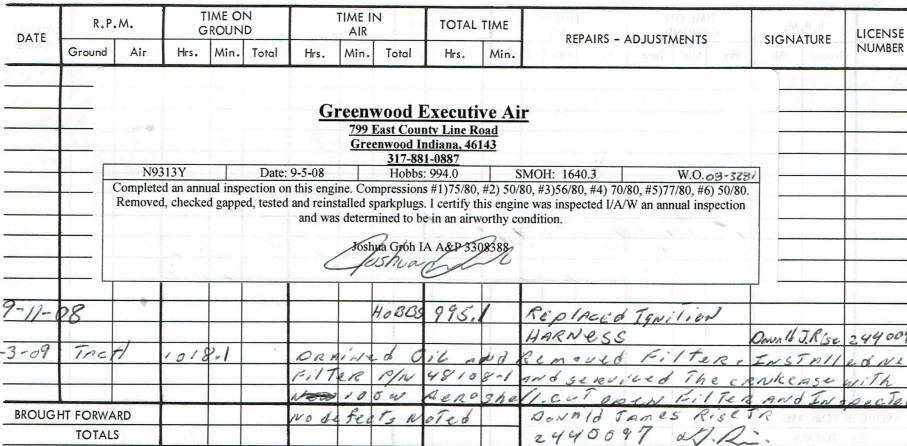 DATE R.P.M. TIME ON GROUND TIME IN AIR TOTAL TIME REPAIRS - ADJUSTMENTS SIGNATURE LICENSE NUMBER
Ground Air Hrs. Min. Total Hrs. Min. Total Hrs. Min.
Greenwood Executive Air
799 East County Line Road
Greenwood Indiana, 46143
317-881-0887
N9313Y Date: 9-5-08 Hobbs: 994.0 SMOH: 1640.3 W.O. 08-3281
Completed an annual inspection on this engine. Compressions #1)75/80, #2) 50/80, #3)56/80, #4) 70/80, #5)77/80, #6) 50/80.
Removed, checked gapped, tested and reinstalled sparkplugs. I certify this engine was inspected I/A/W an annual inspection
and was determined to be in an airworthy condition.
Joshua Groh IA A&P 3308388
9-11-08 HOBBS 995.1 Replaced Ignition
HARNESS Donald J. Rise 244009
-3-09 Tach 1018.1 Drained Oil and Removed Filter. INSTAlled Ne
Filter P/N 48108-1 and serviced The crnkcase with
100W Aeroshell. Cut open Filter And Inspected
BROUGHT FORWARD No defects Noted Donald James Rise JR
TOTALS 2440097